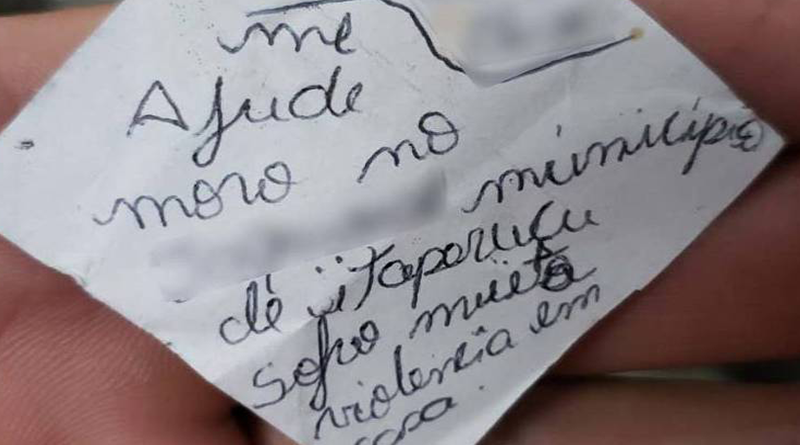 me
Ajude
moro no
município
de itaperuçu
sofro muita
violencia em
casa.